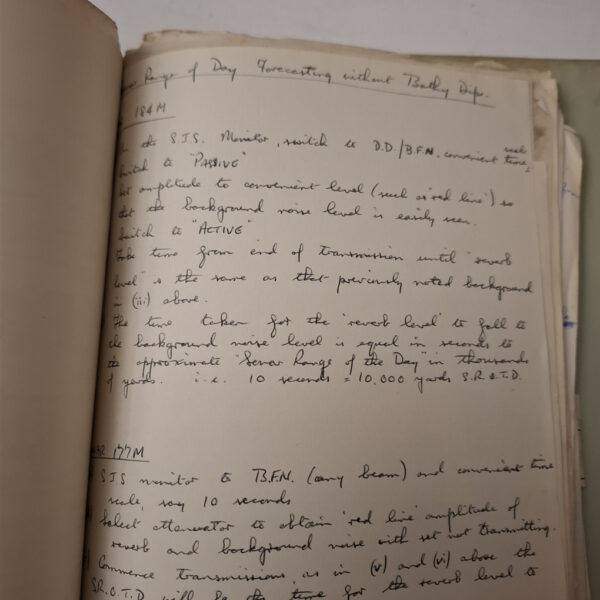 Range of Day Forecasting without Bathy Dip.
184M
the S.J.S. Monitor, switch to D.D./B.F.N., convenient time scale
switch to "PASSIVE"
set amplitude to convenient level (such as 'red line') so
that the background noise level is easily seen.
switch to "ACTIVE"
Take time from end of transmission until "reverb
level" is the same as that previously noted background
in (iii) above.
The time taken for the 'reverb level' to fall to
the background noise level is equal in seconds to
the approximate "Sonar Range of the Day" in thousands
of yards. i.e. 10 seconds = 10,000 yards S.R.O.T.D.
177M
SJS monitor to B.F.N. (any beam) and convenient time
scale, say 10 seconds
Select attenuator to obtain 'red line' amplitude of
reverb and background noise with set not transmitting.
Commence transmissions, as in (v) and (vi) above the
S.R.O.T.D. will be the time for the reverb level to